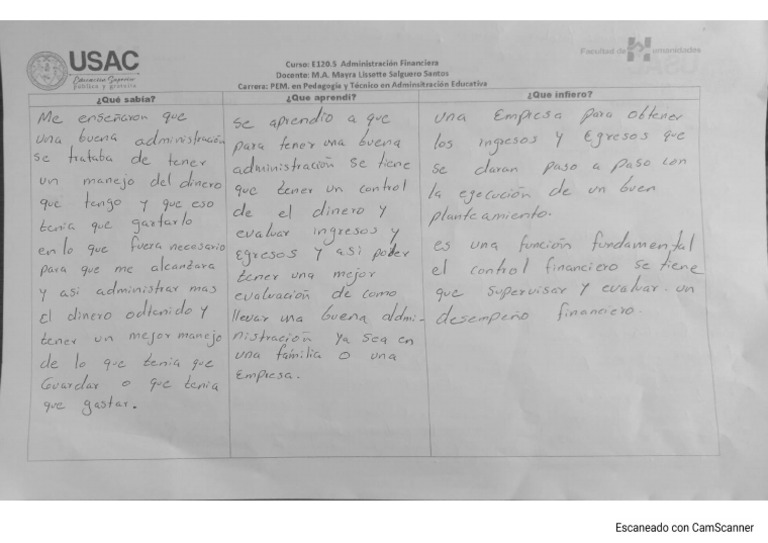 USAC
Educación Superior
Pública y gratuita
Curso: E120.5 Administración Financiera
Docente: M.A. Mayra Lissette Salguero Santos
Carrera: PEM. en Pedagogía y Técnico en Adminsitración Educativa
Facultad de Humanidades
¿Qué sabía?
Me enseñaron que
una buena administración
se trataba de tener
un manejo del dinero
que tengo y que eso
tenia que gartarlo
en lo que fuera necesario
para que me alcanzara
y asi administrar mas
El dinero odtenido y
tener un mejor manejo
de lo que tenia que
Guardar o que tenia
que gastar.
¿Que aprendí?
se aprendio a que
para tener una buena
administración se tiene
que tener un control
de el dinero y
evaluar ingresos y
Egresos y asi poder
tener una mejor
evaluación de como
llevar una buena admi-
nistración ya sea en
una familia o una
Empresa.
¿Que infiero?
una Empresa para obtener
los ingresos y Egresos que
se claran paso a paso con
la egecución de un buen
planteamiento.
es una función fundamental
el control financiero se tiene
que supervisar y evaluar un
desempeño financiero.
Escaneado con CamScanner